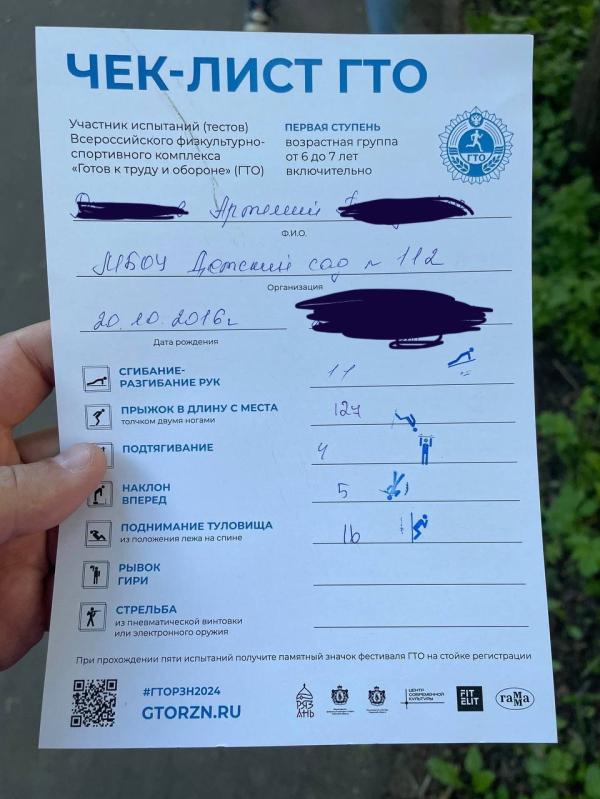 ЧЕК-ЛИСТ ГТО
Участник испытаний (тестов)
Всероссийского физкультурно-
спортивного комплекса
«Готов к труду и обороне» (ГТО)
ПЕРВАЯ СТУПЕНЬ
возрастная группа
от 6 до 7 лет
включительно
ГТО
Артемий
Ф.И.О.
МБОУ Детский сад № 112
Организация
20.10.2016г
Дата рождения
СГИБАНИЕ-
РАЗГИБАНИЕ РУК
11
ПРЫЖОК В ДЛИНУ С МЕСТА
толчком двумя ногами
127
ПОДТЯГИВАНИЕ
4
НАКЛОН
ВПЕРЕД
5
ПОДНИМАНИЕ ТУЛОВИЩА
из положения лежа на спине
16
РЫВОК
ГИРИ
СТРЕЛЬБА
из пневматической винтовки
или электронного оружия
При прохождении пяти испытаний получите памятный значок фестиваля ГТО на стойке регистрации
#ГТОРЗН2024
GTORZN.RU
РЯЗ
АНЬ
ЦЕНТР
СОВРЕМЕННОЙ
КУЛЬТУРЫ
FIT
ELIT
гамма